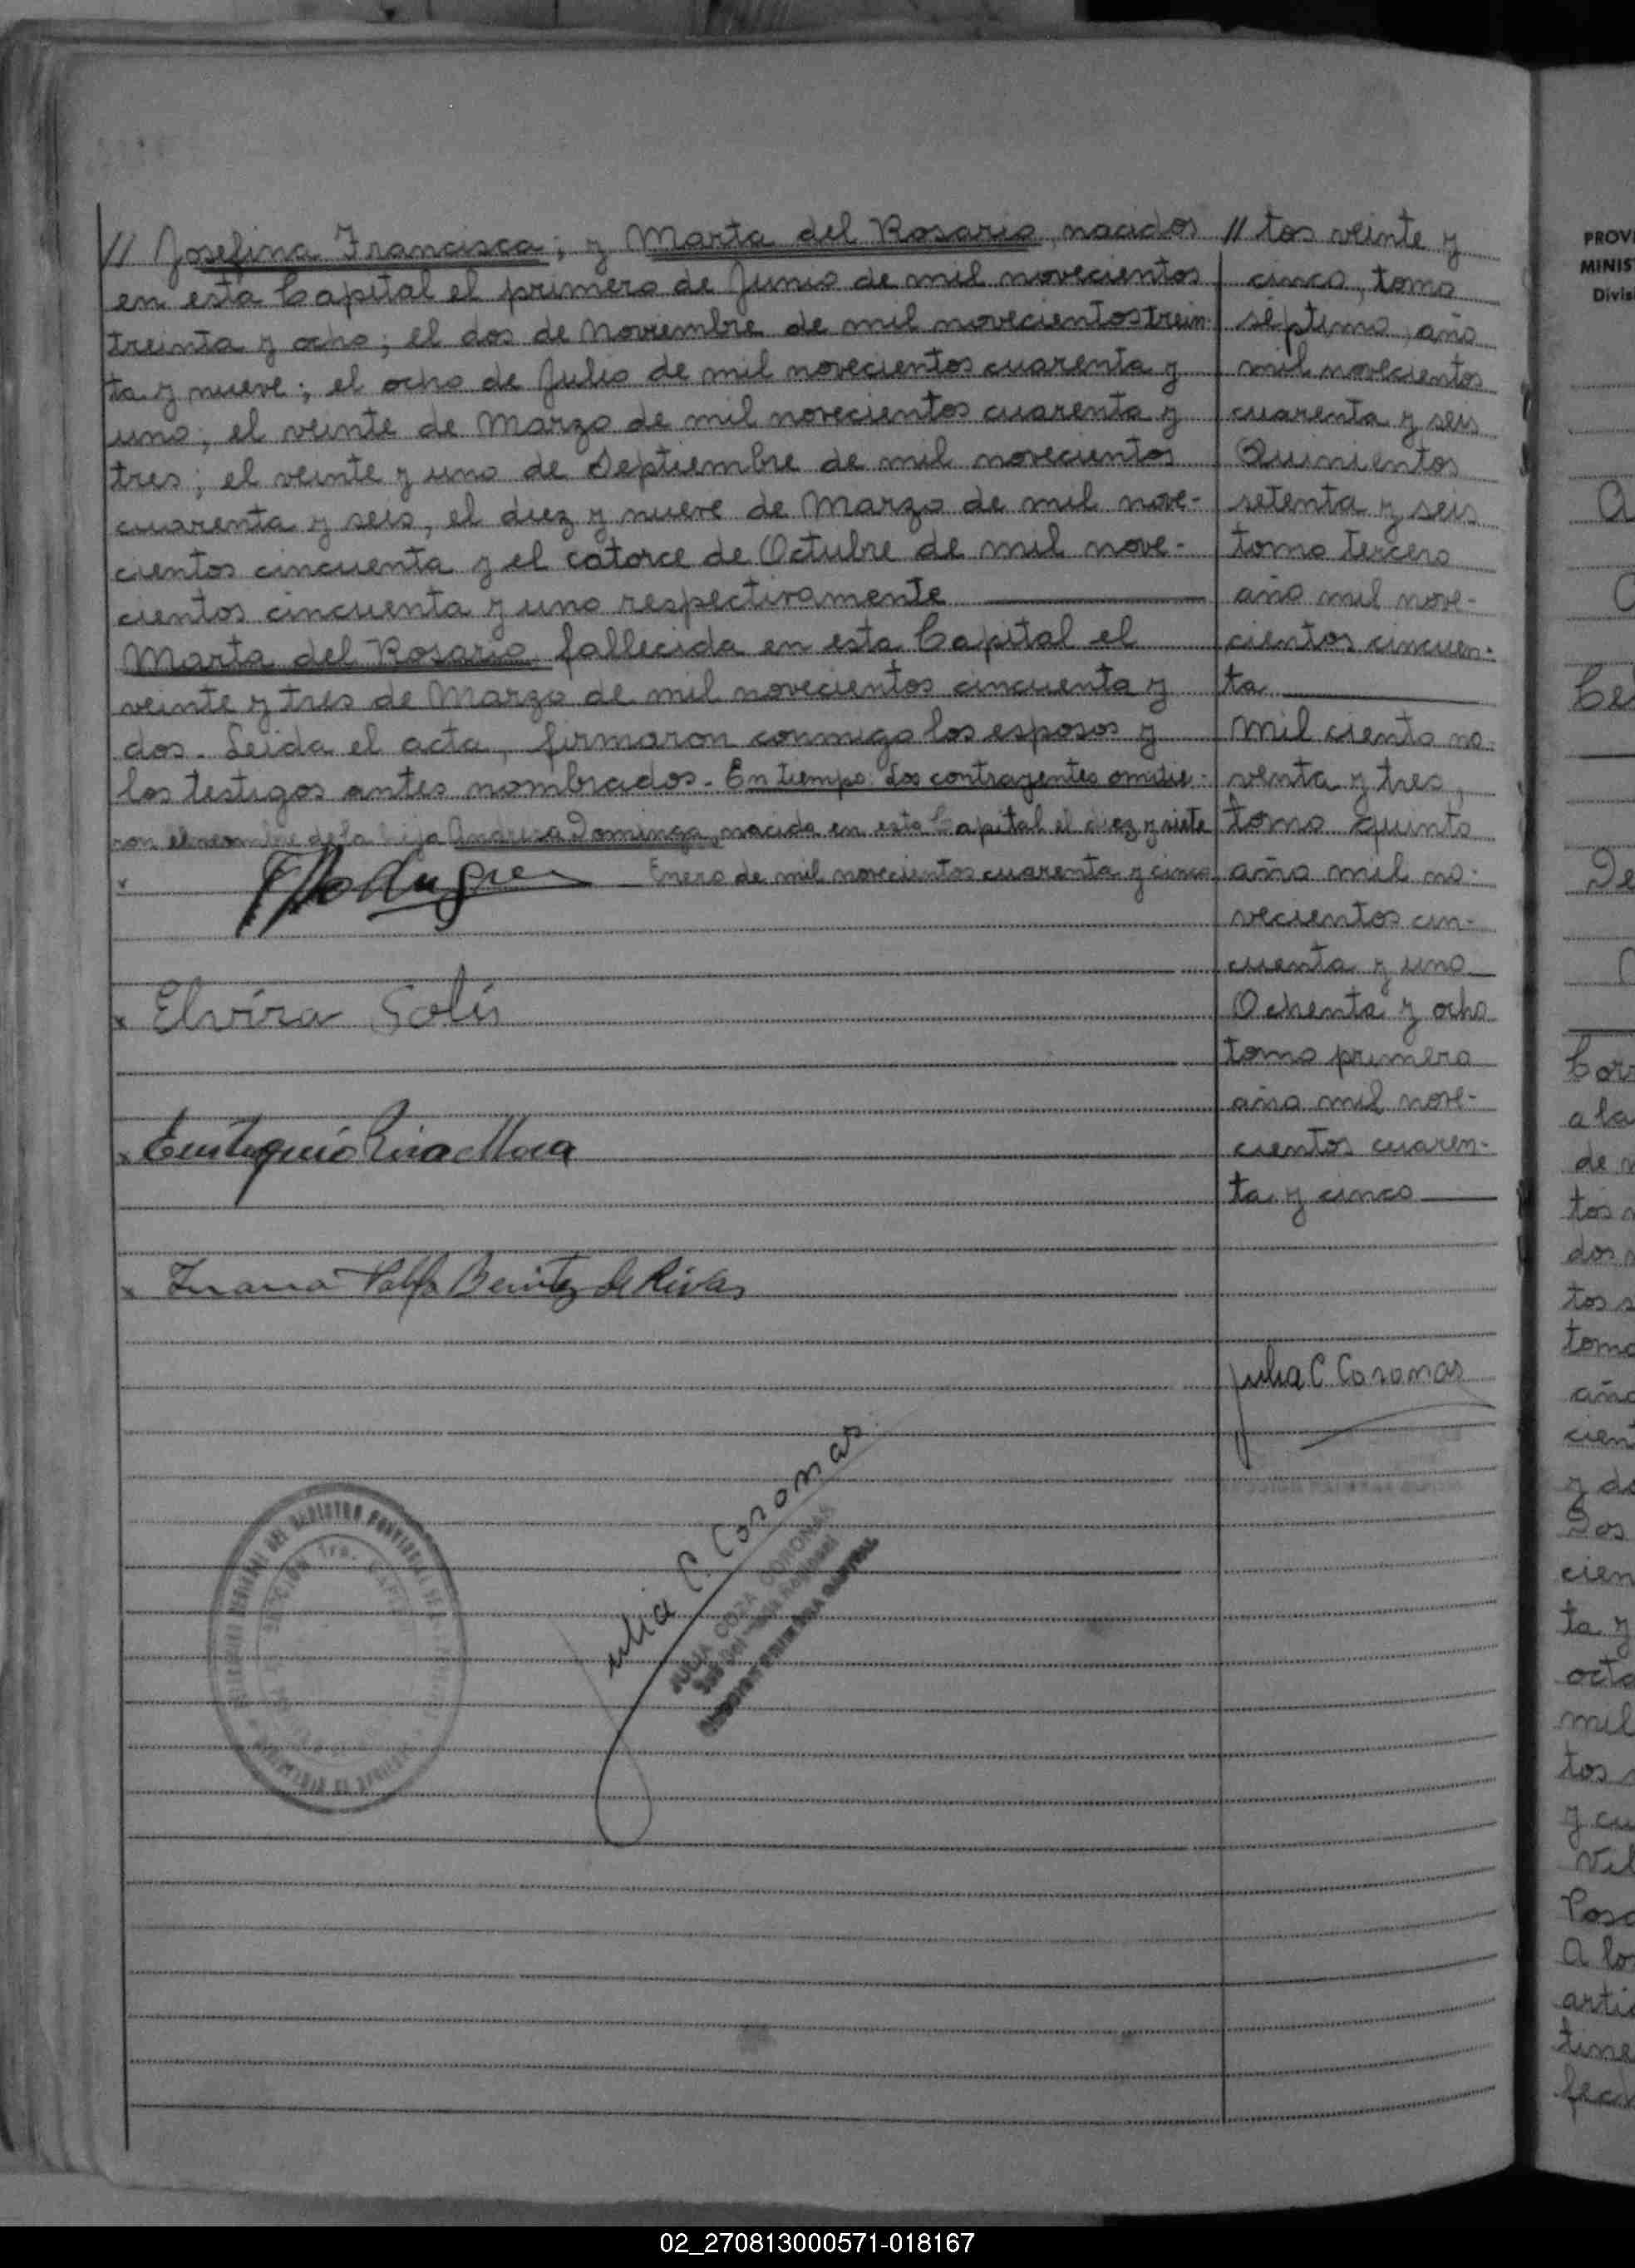 // Josefina Francisca; y Marta del Rosario, nacidos
en esta Capital el primero de Junio de mil novecientos
treinta y ocho; el dos de Noviembre de mil novecientos trein-
ta y nueve; el ocho de Julio de mil novecientos cuarenta y
uno; el veinte de Marzo de mil novecientos cuarenta y
tres; el veinte y uno de Septiembre de mil novecientos
cuarenta y seis, el diez y nueve de Marzo de mil nove-
cientos cincuenta y el catorce de Octubre de mil nove-
cientos cincuenta y uno respectivamente
Marta del Rosario fallecida en esta Capital el
veinte y tres de Marzo de mil novecientos cincuenta y
dos. Leida el acta, firmaron conmigo los esposos y
los testigos antes nombrados. En tiempo: Los contrayentes omitie-
ron el nombre de la hija Andresa Dominga, nacida en esta Capital el diez y siete
Enero de mil novecientos cuarenta y cinco
Elvira Solis
Juana Benitez de Rivas
Julia C. Coronas
JULIA CORA CORONAS
// tos veinte y
cinco, tomo
séptimo, año
mil novecientos
cuarenta y seis
Quinientos
setenta y seis
tomo tercero
año mil nove-
cientos cincuen-
ta
Mil ciento no-
venta y tres,
tomo quinto
año mil no-
vecientos cin-
cuenta y uno
Ochenta y ocho
tomo primero
año mil nove-
cientos cuaren-
ta y cinco
Julia C. Coronas
PROV
MINIS
Divis
02_270813000571-018167